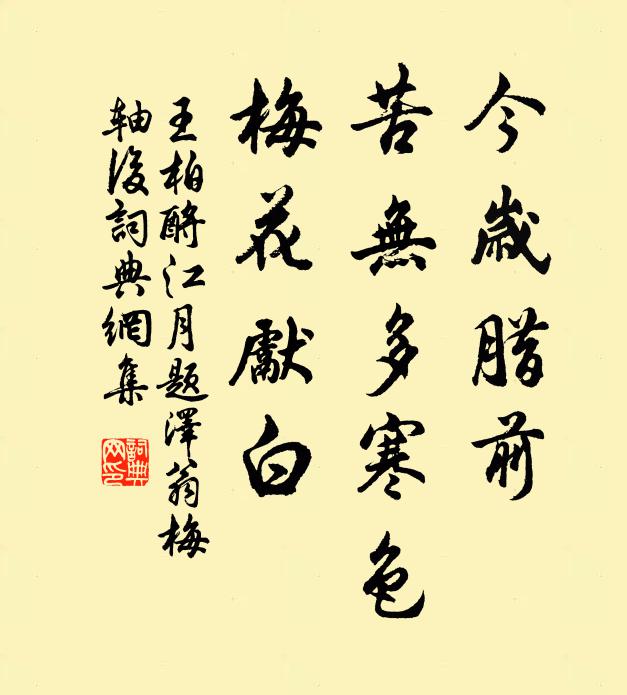 今歲腊前
苦無多寒色
梅花獻白
王柏酹江月題澤翁梅
軸後詞典網集
詞典网印